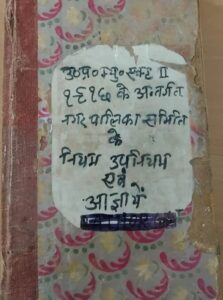 उ०प्र० म्यु० एक्ट II
१९१६ के अन्तर्गत
नगर पालिका समिति
के
नियम उपनियम
एवं
आज्ञायें